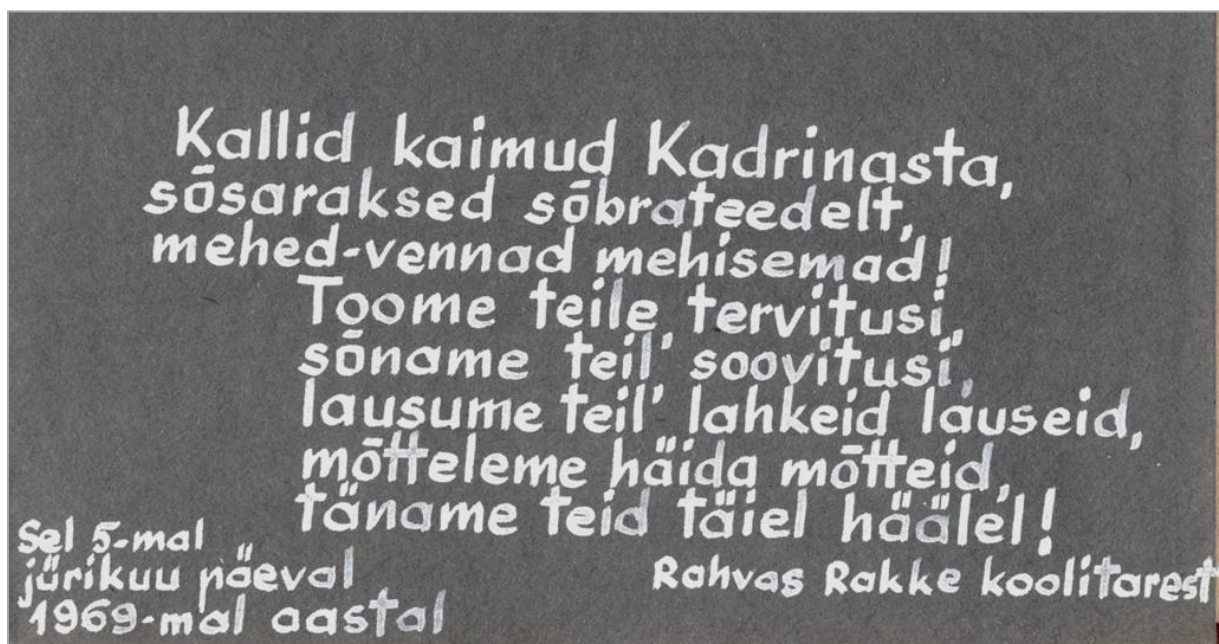 Kallid kaimud Kadrinasta,
sõsaraksed sõbrateedelt,
mehed-vennad mehisemad!
Toome teile tervitusi,
sõname teil' soovitusi,
lausume teil' lahkeid lauseid,
mõtteleme häida mõtteid,
täname teid täiel häälel!
Sel 5-mal
jürikuu päeval
1969-mal aastal
Rahvas Rakke koolitarest